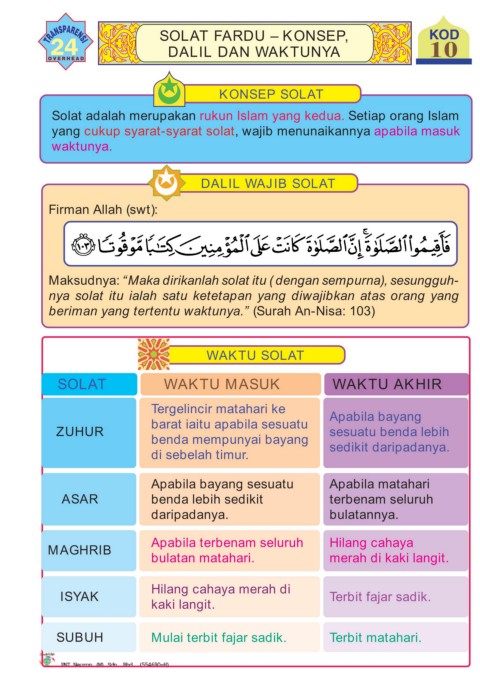 TRANSPARENSI
24
OVERHEAD
SOLAT FARDU – KONSEP,
DALIL DAN WAKTUNYA
KOD
10
KONSEP SOLAT
Solat adalah merupakan rukun Islam yang kedua. Setiap orang Islam
yang cukup syarat-syarat solat, wajib menunaikannya apabila masuk
waktunya.
DALIL WAJIB SOLAT
Firman Allah (swt):
فَأَقِيمُوا۟ ٱلصَّلَوٰةَ ۚ إِنَّ ٱلصَّلَوٰةَ كَانَتْ عَلَى ٱلْمُؤْمِنِينَ كِتَـٰبًا مَّوْقُوتًا ﴿١٠٣﴾
Maksudnya: “Maka dirikanlah solat itu ( dengan sempurna), sesungguh-
nya solat itu ialah satu ketetapan yang diwajibkan atas orang yang
beriman yang tertentu waktunya.” (Surah An-Nisa: 103)
WAKTU SOLAT
SOLAT
WAKTU MASUK
WAKTU AKHIR
ZUHUR
Tergelincir matahari ke
barat iaitu apabila sesuatu
benda mempunyai bayang
di sebelah timur.
Apabila bayang
sesuatu benda lebih
sedikit daripadanya.
ASAR
Apabila bayang sesuatu
benda lebih sedikit
daripadanya.
Apabila matahari
terbenam seluruh
bulatannya.
MAGHRIB
Apabila terbenam seluruh
bulatan matahari.
Hilang cahaya
merah di kaki langit.
ISYAK
Hilang cahaya merah di
kaki langit.
Terbit fajar sadik.
SUBUH
Mulai terbit fajar sadik.
Terbit matahari.